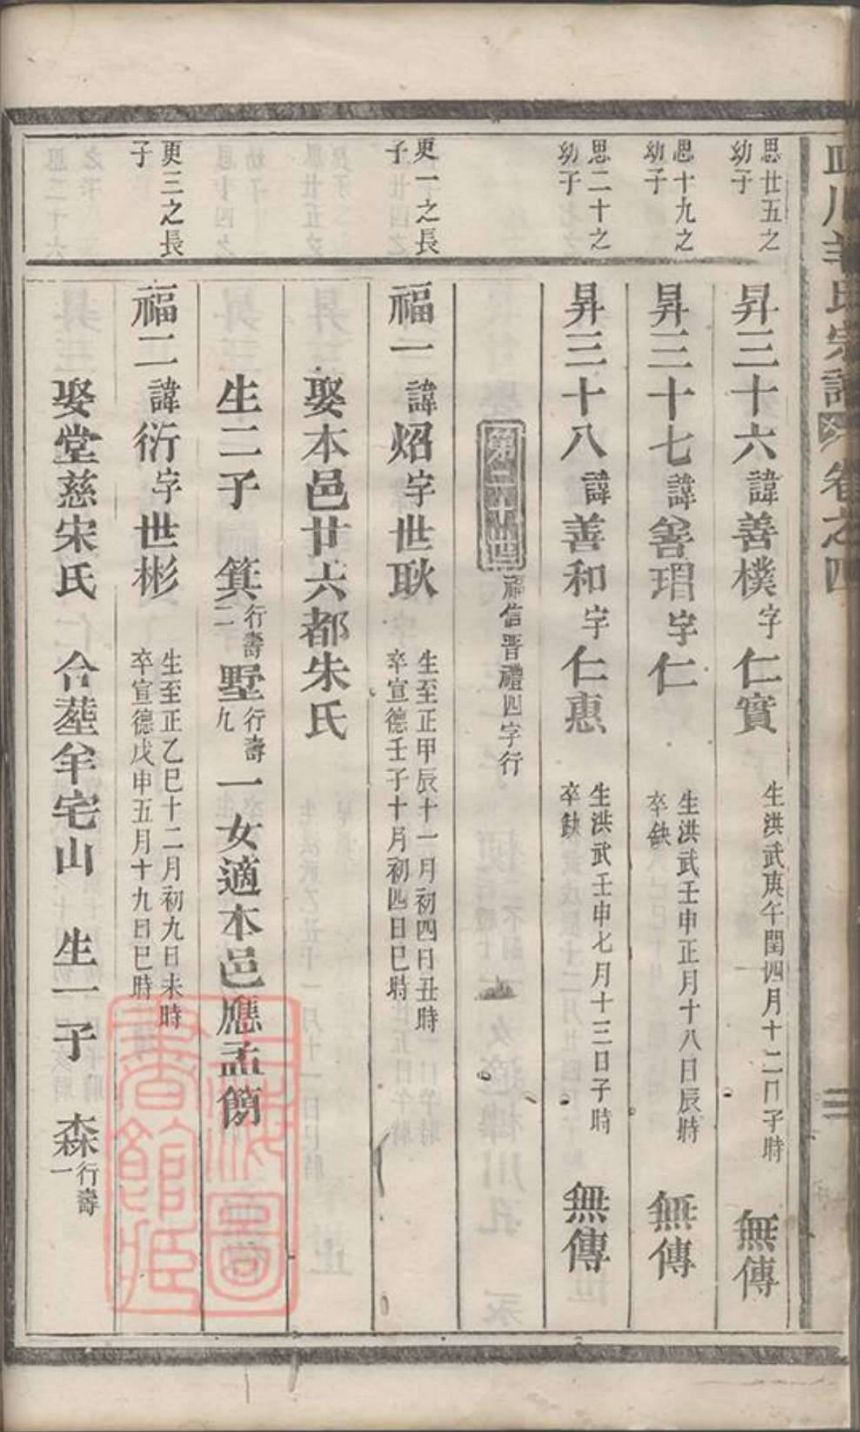 氏宗譜 卷之四
思廿五之幼子
昇三十六 諱善樸 字仁實 生洪武庚午閏四月十二日子時 無傳
思十九之幼子
昇三十七 諱善瑁 字仁 生洪武壬申正月十八日辰時 卒缺 無傳
思二十之幼子
昇三十八 諱善和 字仁惠 生洪武壬申七月十三日子時 卒缺 無傳
福信晋禮四字行
更一之長子
福一 諱炤 字世耿 生至正甲辰十一月初四日丑時 卒宣德壬子十月初四日巳時
娶本邑廿六都朱氏
生二子 箕行壽二 墅行壽九 一女適本邑應孟簡
更三之長子
福二 諱衍 字世彬 生至正乙巳十二月初九日未時 卒宣德戊申五月十九日巳時
娶堂慈宋氏 合塟羊宅山 生一子 森行壽一